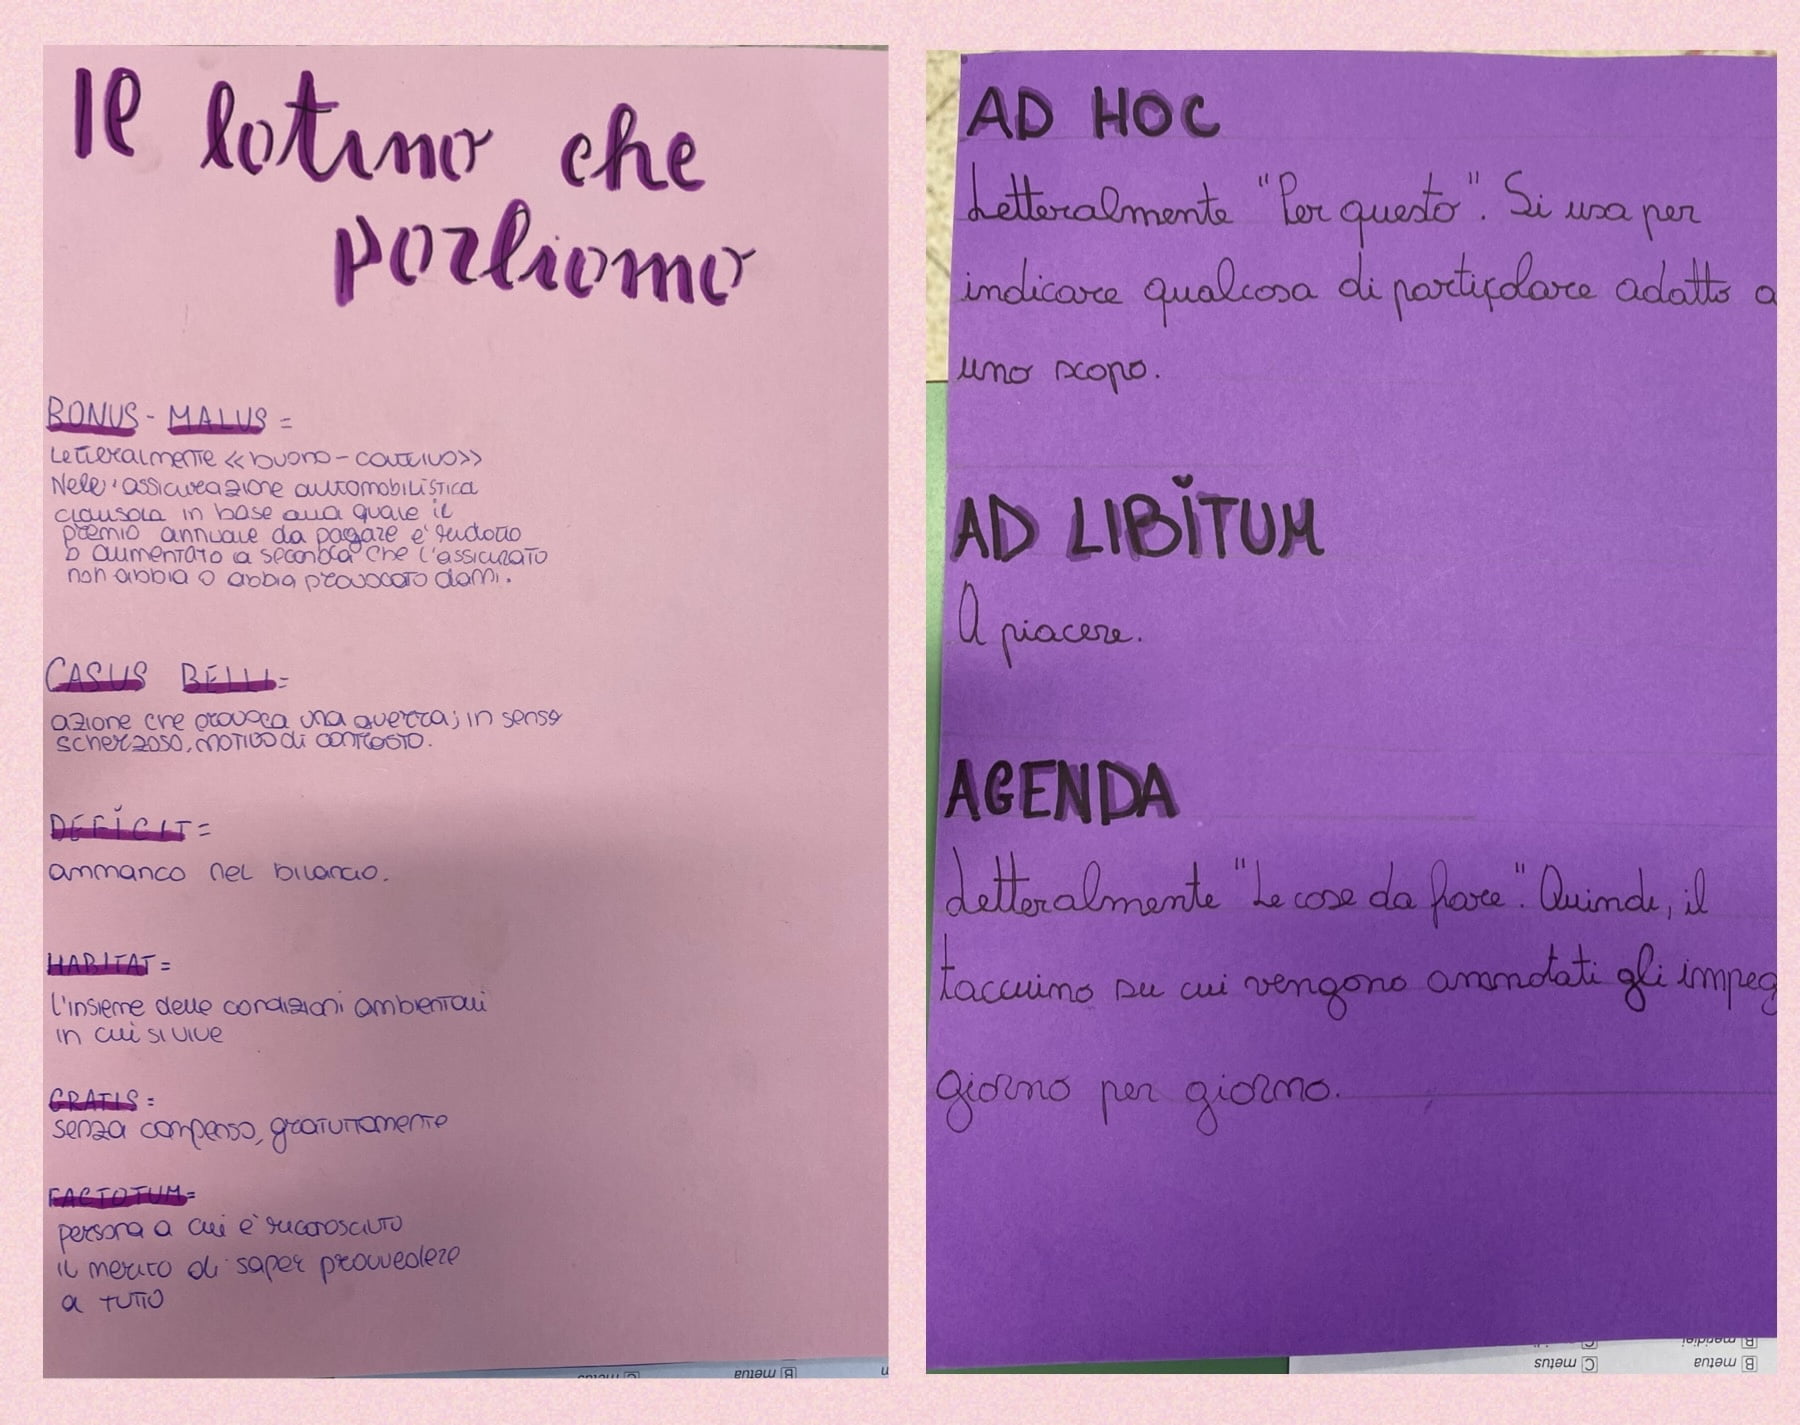 Il latino che
parliamo
BONUS - MALUS =
Letteralmente <<buono - cattivo>>
Nell'assicurazione automobilistica
clausola in base alla quale il
premio annuale da pagare è ridotto
o aumentato a seconda che l'assicurato
non abbia o abbia provocato danni.
CASUS BELLI =
azione che provoca una guerra; in senso
scherzoso, motivo di contrasto.
DEFICIT =
ammanco nel bilancio.
HABITAT =
l'insieme delle condizioni ambientali
in cui si vive
GRATIS =
senza compenso, gratuitamente
FACTOTUM =
persona a cui è riconosciuto
il merito di saper provvedere
a tutto
B metua
AD HOC
Letteralmente "Per questo". Si usa per
indicare qualcosa di particolare adatto a
uno scopo.
AD LIBITUM
A piacere.
AGENDA
Letteralmente "Le cose da fare". Quindi, il
taccuino su cui vengono annotati gli impeg
giorno per giorno.
C metus
B metua